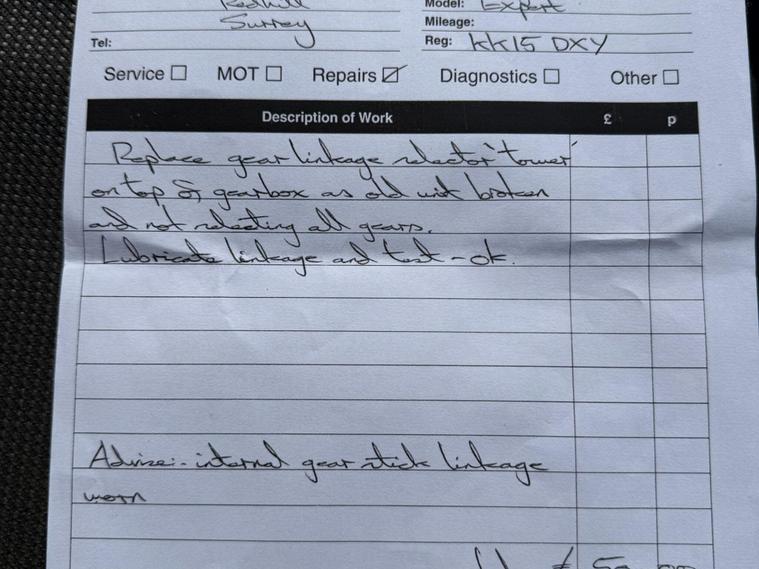 Redhill Model: Expert
Surrey Mileage:
Tel: Reg: KK15 DXY
Service MOT Repairs Diagnostics Other
Description of Work £ p
Replace gear linkage selector 'tower'
on top of gearbox as old unit broken
and not selecting all gears.
Lubricate linkage and test - ok.
Advise:- internal gear stick linkage
worn